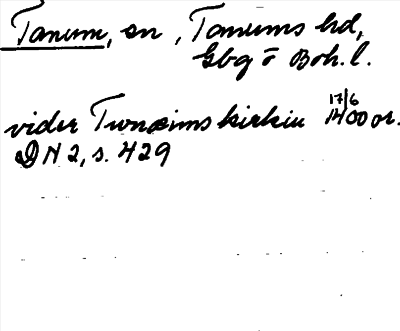 Tanum, sn, Tanums hd,
Gbg o Boh. l.
vider Twnæims kirkiu 17/6 1400 or.
DN 2, s. 429